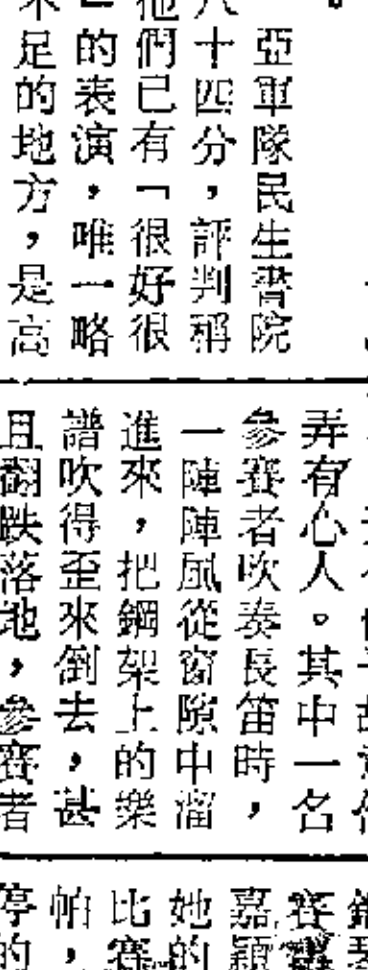 。
亞軍隊民生書院
八十四分，評判稱
他們已有「很好很
」的表演，唯一略
未足的地方，是高
弄有心人。其中一名
參賽者吹奏長笛時，
一陣陣風從窗隙中溜
進來，把鋼架上的樂
譜吹得歪來倒去，甚
且翻跌落地，參賽者
賽
嘉穎
她的
比賽
帕，
停的